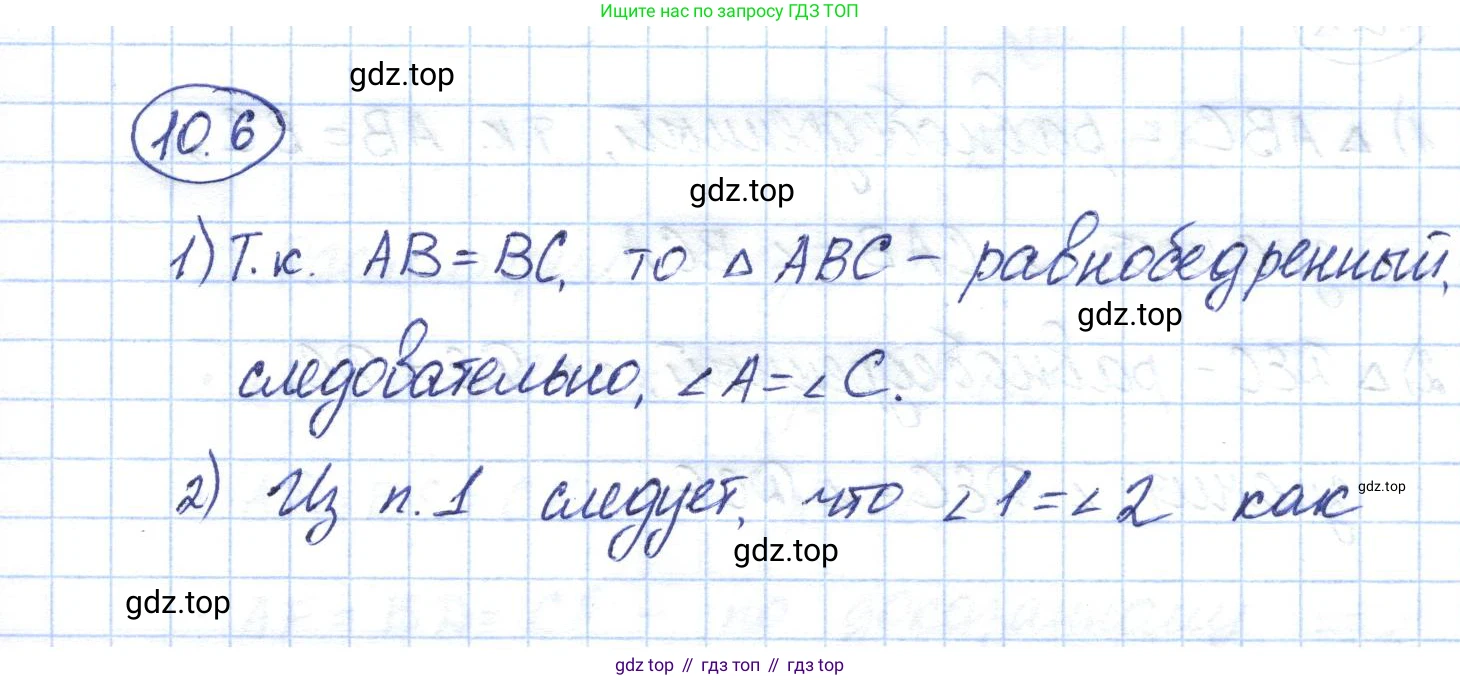 Ищите нас по запросу ГДЗ ТОП
gdz.top
10.6
gdz.top
1) Т.к. AB = BC, то △ ABC – равнобедренный,
gdz.top
следовательно, ∠A = ∠C.
2) Из п.1 следует, что ∠1 = ∠2 как
gdz.top
gdz.top
gdz.top
gdz top // гдз топ // гдз top